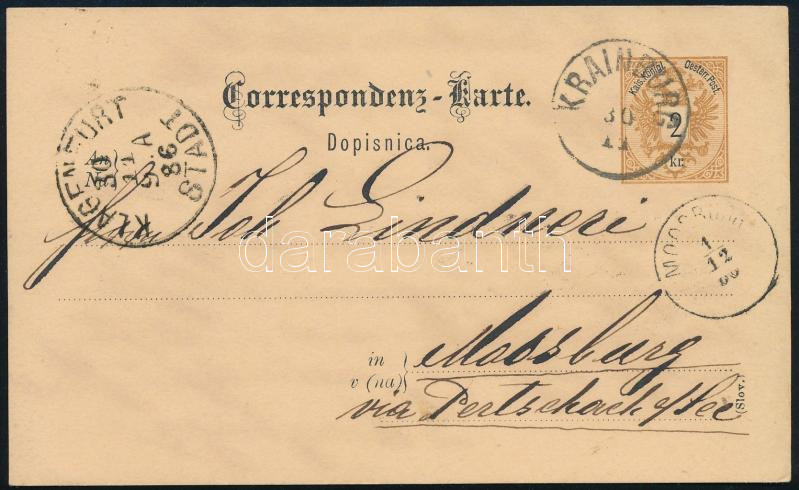 Correspondenz-Karte.
Dopisnica.
Kais. Königl. Oesterr. Post.
2
kr.
KRAINBURG
30
11
KLAGENFURT
30
11
9 A
86
STADT
An
Joh Lindneri
1
12
86
in
v (na)
Moosburg
via Pertschach a/See
(Slov.)
darabanth